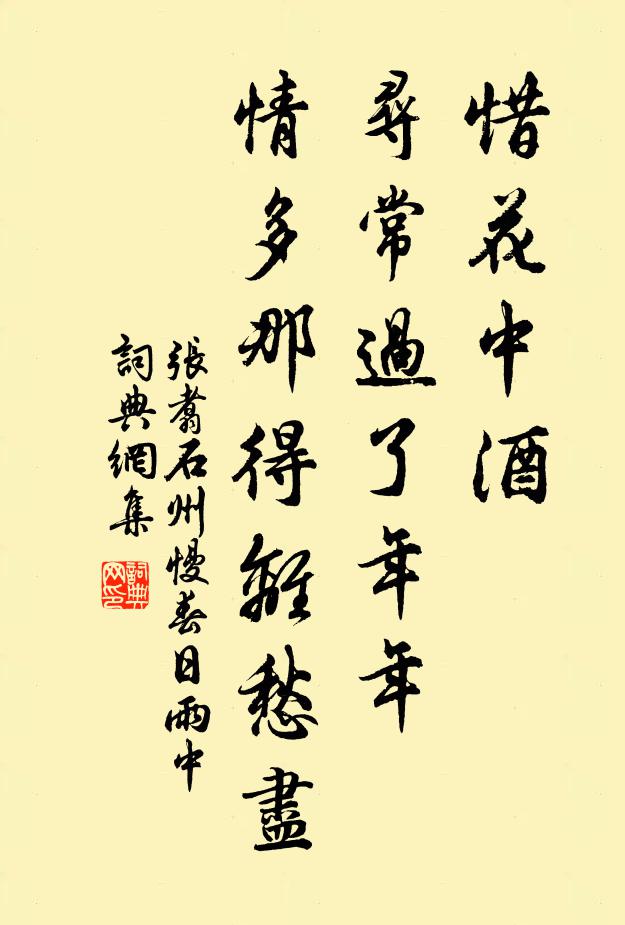 惜花中酒
尋常過了年年
情多那得離愁盡
張翥石州慢春日雨中
詞典網集
詞典
网印